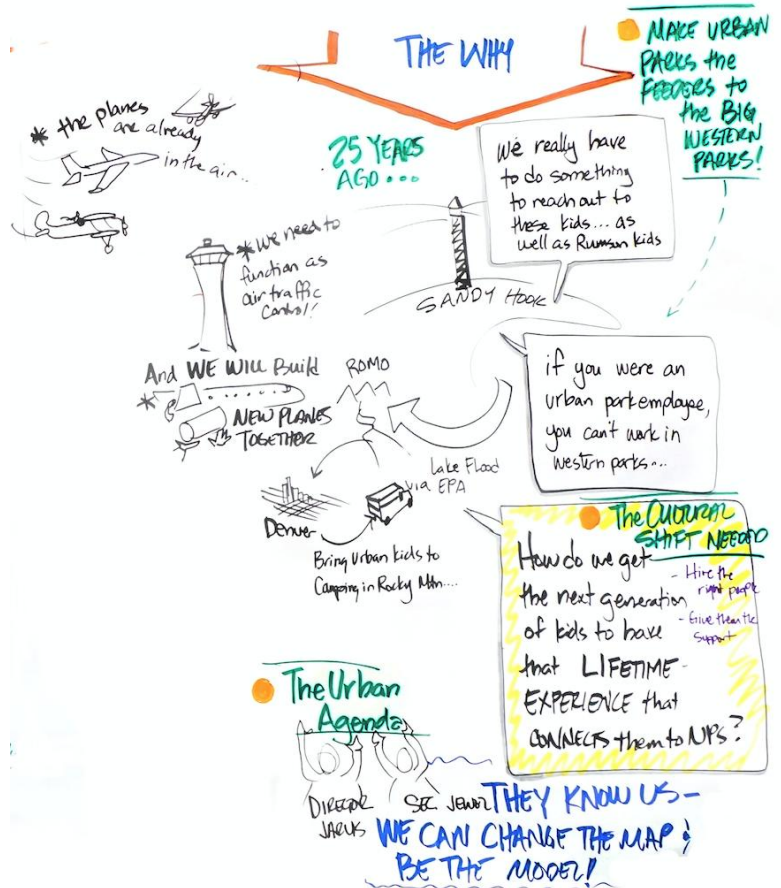 THE WHY
MAKE URBAN
PARKS the
FEEDERS to
the BIG
WESTERN
PARKS!
* the planes
are already
in the air...
25 YEARS
AGO...
We really have
to do something
to reach out to
these kids... as
well as Rumson kids
* We need to
function as
air traffic
control!
SANDY HOOK
And WE WILL Build
*
NEW PLANES
TOGETHER
ROMO
if you were an
urban park employee,
you can't work in
western parks...
Lake Flood
via EPA
Denver
Bring Urban kids to
Camping in Rocky Mtn....
The CULTURAL
SHIFT NEEDED
How do we get
the next generation
of kids to have
that LIFETIME
EXPERIENCE that
CONNECTS them to NPS?
- Hire the
right people
- Give them the
support
The Urban
Agenda
DIRECTOR
JARVIS
SEC JEWEL
THEY KNOW US -
WE CAN CHANGE THE MAP &
BE THE MODEL!